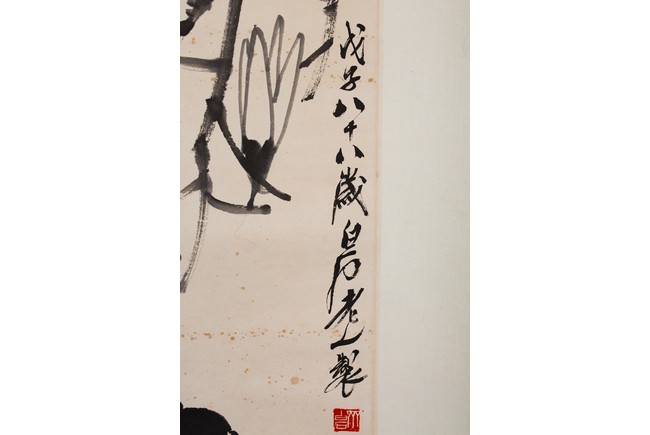 戊子八十八歲白石老人製